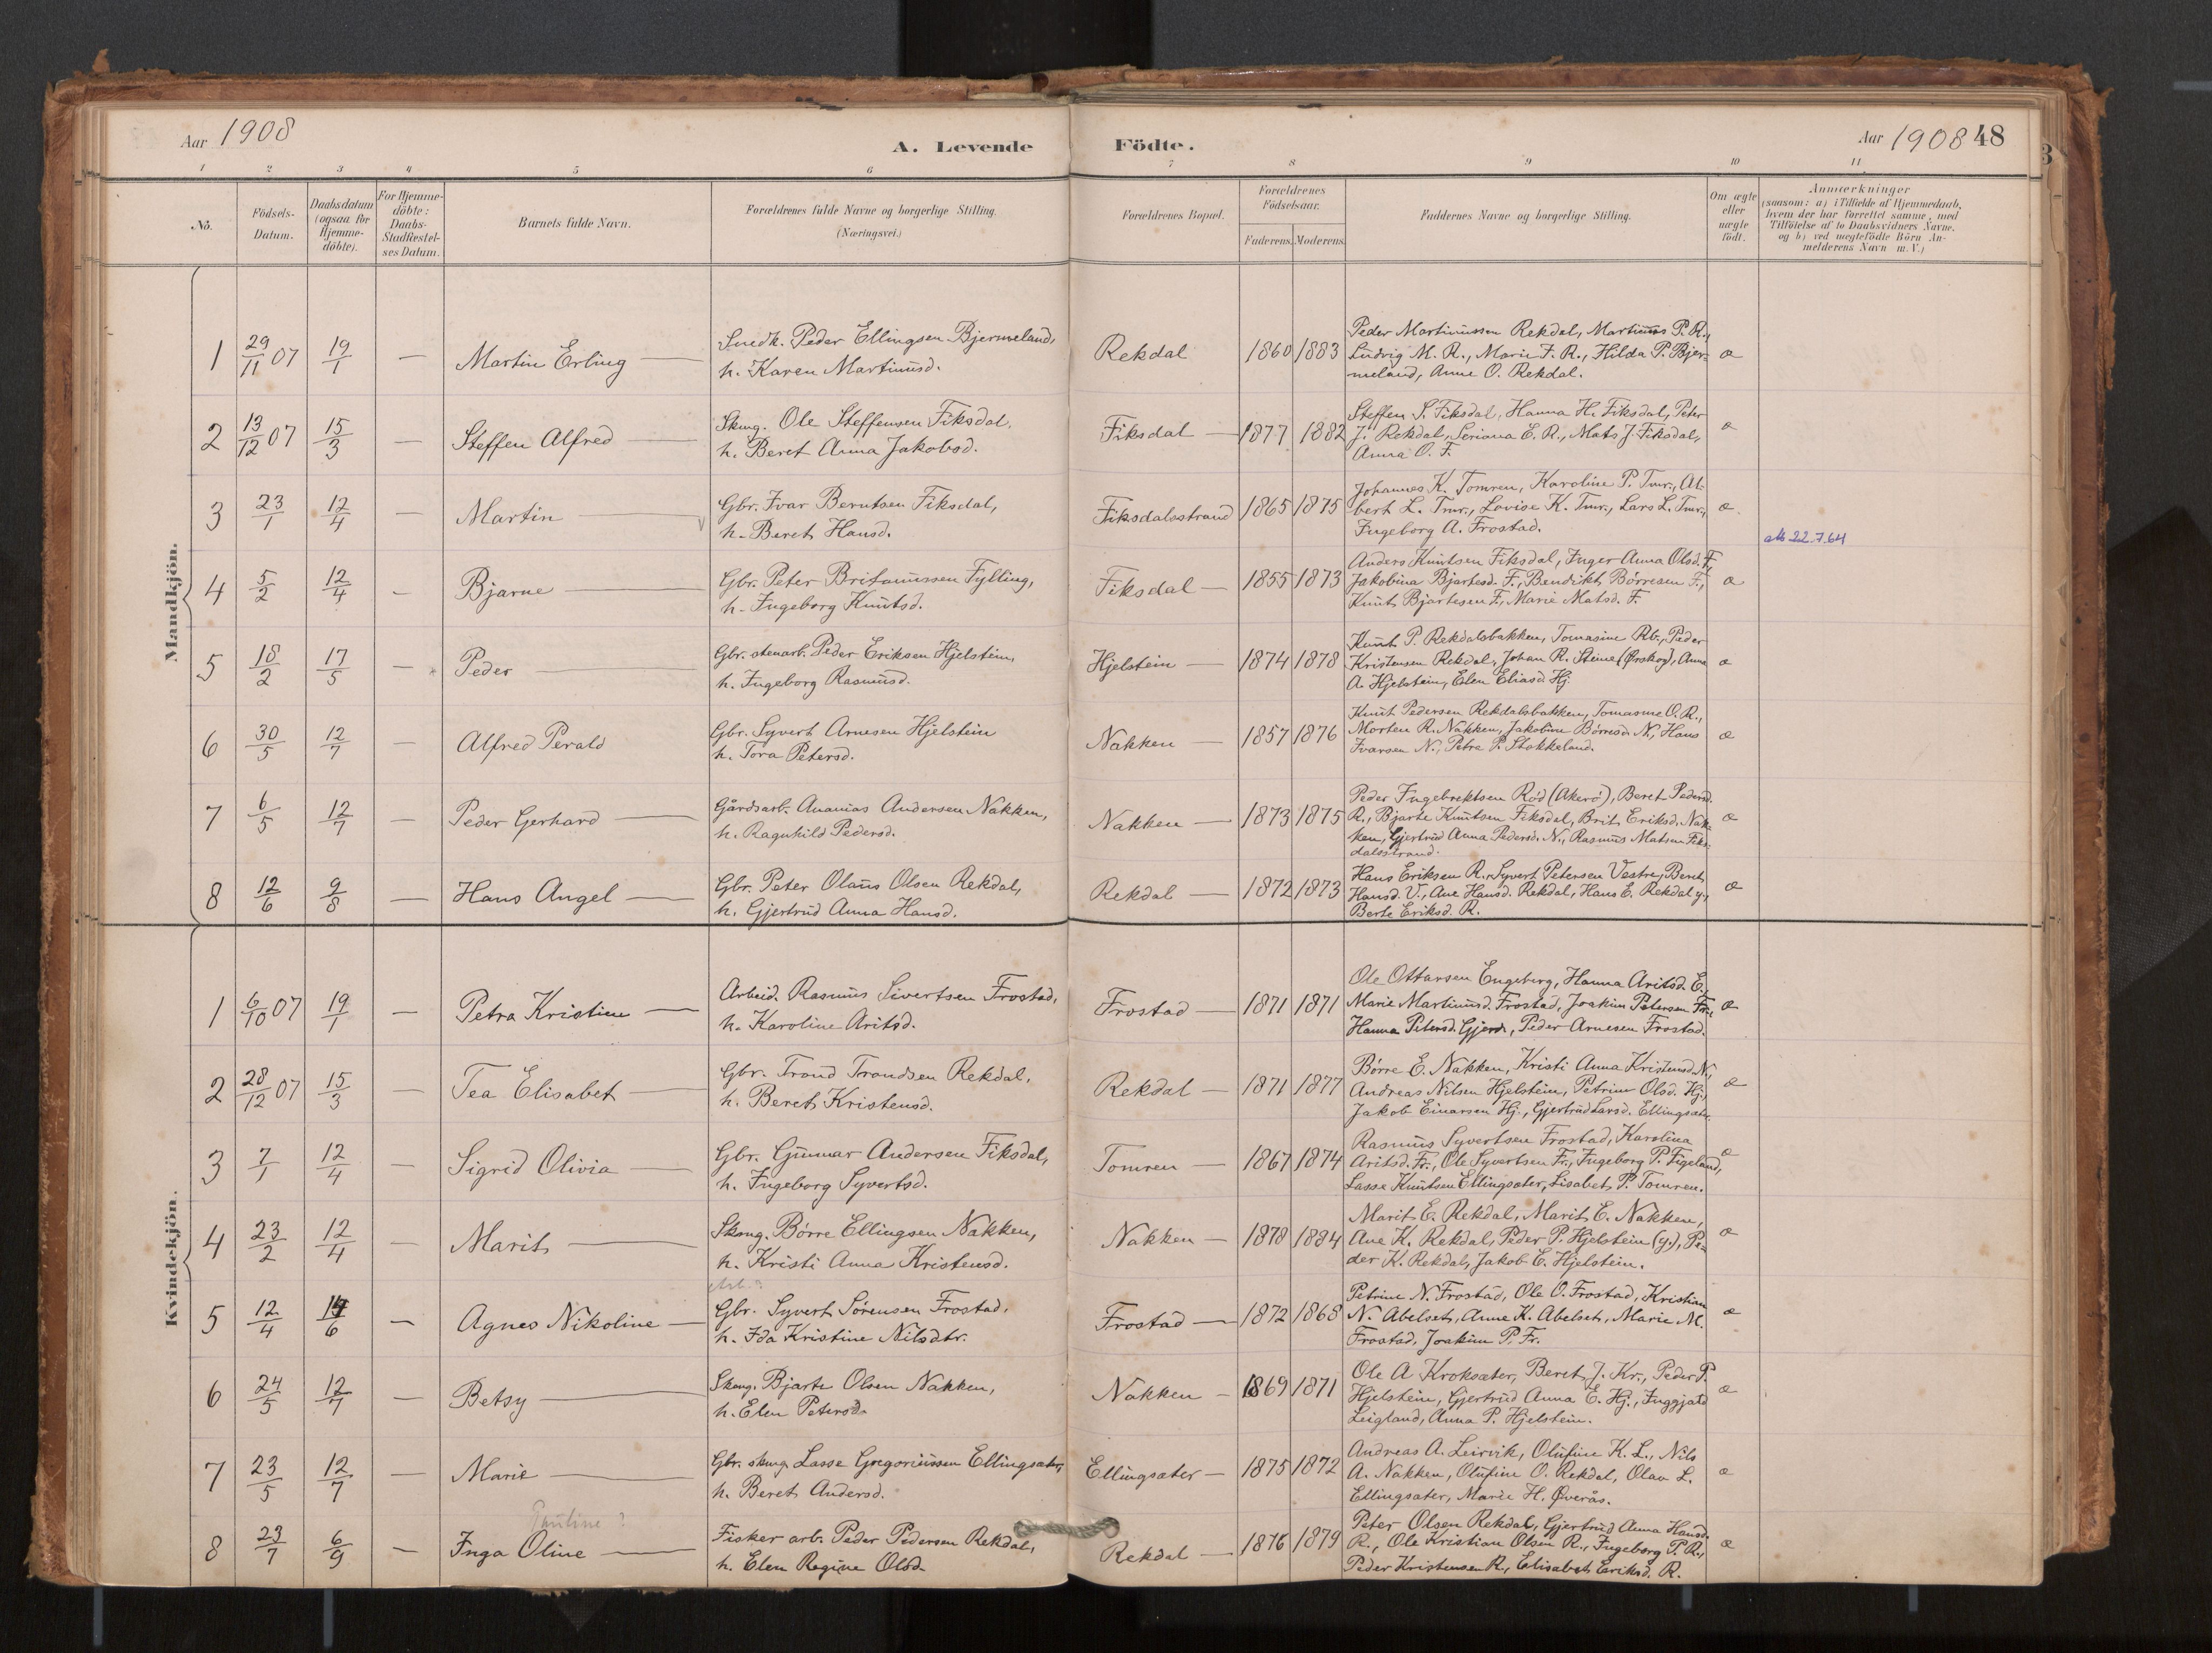 Aar 1908
A. Levende Födte.
Aar 1908 48
1 2 3 4 5 6 7 8 9 10 11
No.
Födsels-Datum.
Daabsdatum (ogsaa for Hjemme-döbte).
For Hjemme-döbte: Daabs-Stadfæstel-ses Datum.
Barnets fulde Navn.
Forældrenes fulde Navne og borgerlige Stilling.
(Næringsvei.)
Forældrenes Bopæl.
Forældrenes Födselsaar.
Faderens. Moderens.
Faddernes Navne og borgerlige Stilling.
Om ægte eller uægte födt.
Anmærkninger
(saasom: a) i Tilfælde af Hjemmedaab,
hvem der har forrettet samme, med
Tilföielse af to Daabsvidners Navne,
og b) ved uægtefödte Börn An-
melderens Navn m.V.)
Mandkjön.
1 29/11 07 19/1 — Martin Erling — Snedk. Peder Ellingsen Bjermeland,
h. Karen Martinusd.
Rekdal 1860 1883
Peder Martinussen Rekdal, Martinus P. R.,
Ludvig M. R., Marie F. R., Hilda P. Bjer-
meland, Anne O. Rekdal.
æ
2 13/12 07 15/3 — Steffen Alfred — Skmg. Ole Steffensen Fiksdal,
h. Beret Anna Jakobsd.
Fiksdal — 1877 1882
Steffen S. Fiksdal, Hanna H. Fiksdal, Peter
J. Rekdal, Seriana E. R., Mats J. Fiksdal,
Anna O. F.
æ
3 23/1 12/4 — Martin — Gbr. Ivar Berntsen Fiksdal,
h. Beret Hansd.
Fiksdalsstrand 1865 1875
Johannes K. Tomren, Karoline P. Tmr., Al-
bert L. Tmr., Lovise K. Tmr., Lars L. Tmr.,
Ingeborg A. Frostad.
æ
22.7.64
4 5/2 12/4 — Bjarne — Gbr. Peter Britanussen Fylling,
h. Ingeborg Knutsd.
Fiksdal — 1855 1873
Anders Knutsen Fiksdal, Inger Anna Olsd. F.,
Jakobina Bjartesd. F., Bendikt Børresen F.,
Knut Bjartesen F., Marie Matsd. F.
æ
5 18/2 17/5 — Peder — Gbr. stenarb. Peder Eriksen Hjelstein,
h. Ingeborg Rasmusd.
Hjelstein — 1874 1878
Knut P. Rekdalsbakken, Tomasine Rb., Peder
Kristensen Rekdal, Johan R. Steine (Ørskog), Anna
A. Hjelstein, Elen Eliasd. Hj.
æ
6 30/5 12/7 — Alfred Perald Gbr. Syvert Arnesen Hjelstein
h. Tora Petersd.
Nakken — 1857 1876
Knut Pedersen Rekdalsbakken, Tomasine O. R.,
Morten R. Nakken, Jakobine Børresd. N., Hans
Ivarsen N., Petra P. Stokkeland.
æ
7 6/5 12/7 — Peder Gerhard — Gårdsarb. Ananias Andersen Nakken,
h. Ragnhild Pedersd.
Nakken — 1873 1875
Peder Ingebrektsen Röd (Akerö), Beret Pedersd.
R., Bjarte Knutsen Fiksdal, Brit Eriksd. Nak-
ken, Gjertrud Anna Pedersd. N., Rasmus Matsen Fiks-
dalsstrand.
æ
8 12/6 9/8 — Hans Angel — Gbr. Peter Olaus Olsen Rekdal,
h. Gjertrud Anna Hansd.
Rekdal — 1872 1873
Hans Eriksen R., Syvert Petersen Vestre, Beret
Hansd. V., Ane Hansd. Rekdal, Hans E. Rekdal y.,
Berte Eriksd. R.
æ
Kvindekjön.
1 6/10 07 19/1 — Petra Kristine — Arbeid. Rasmus Sivertsen Frostad,
h. Karoline Aritsd.
Frostad — 1871 1871
Ole Ottarsen Engeberg, Hanna Aritsd. E.,
Marie Martinusd. Frostad, Joakim Petersen Fr.,
Hanna Petersd. Gjerde, Peder Arnesen Frostad.
æ
2 28/12 07 15/3 — Tea Elisabet — Gbr. Trond Trondsen Rekdal,
h. Beret Kristensd.
Rekdal — 1871 1877
Børre E. Nakken, Kristi Anna Kristensd. N.,
Andreas Nilsen Hjelstein, Petrine Olsd. Hj.,
Jakob Einarsen Hj., Gjertrud Larsd. Ellingsæter.
æ
3 7/1 12/4 — Sigrid Olivia — Gbr. Gunnar Andersen Fiksdal,
h. Ingeborg Syvertsd.
Tomren — 1867 1874
Rasmus Syvertsen Frostad, Karolina
Aritsd. Fr., Ole Syvertsen Fr., Ingeborg P. Figeland,
Lasse Knutsen Ellingsæter, Lisabet P. Tomren.
æ
4 23/2 12/4 — Marit — Skmg. Børre Ellingsen Nakken,
h. Kristi Anna Kristensd.
Nakken — 1878 1884
Marit E. Rekdal, Marit E. Nakken,
Ane K. Rekdal, Peder P. Hjelstein (y.), Pe-
der K. Rekdal, Jakob E. Hjelstein.
æ
5 12/4 14/6 — Agnes Nikoline — Gbr. Syvert Sørensen Frostad,
h. Ida Kristine Nilsdtr.
Frostad — 1872 1868
Petrine N. Frostad, Ole O. Frostad, Kristian
N. Abelset, Anne K. Abelset, Marie M.
Frostad, Joakim P. Fr.
æ
6 24/5 12/7 — Betsy — Skmg. Bjarte Olsen Nakken,
h. Elen Petersd.
Nakken — 1869 1871
Ole A. Kroksæter, Beret J. Kr., Peder P.
Hjelstein, Gjertrud Anna E. Hj., Inggjard
Leigland, Anna P. Hjelstein.
æ
7 23/5 12/7 — Marie — Gbr. skmg. Lasse Gregoriussen Ellingsæter,
h. Beret Andersd.
Ellingsæter — 1875 1872
Andreas A. Leirvik, Olufine K. L., Nils
A. Nakken, Olufine O. Rekdal, Olav L.
Ellingsæter, Marie H. Øverås.
æ
Pauline ?
8 23/7 6/9 — Inga Oline — Fisker arb. Peder Pedersen Rekdal,
h. Elen Regine Olsd.
Rekdal — 1876 1879
Peter Olsen Rekdal, Gjertrud Anna Hansd.
R., Ole Kristian Olsen R., Ingeborg P. R.,
Peder Kristensen R., Elisabet Eriksd. R.
æ